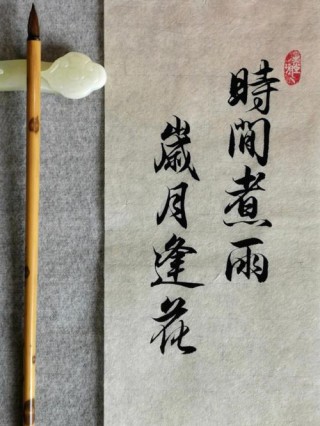 時間煮雨
歲月逢花